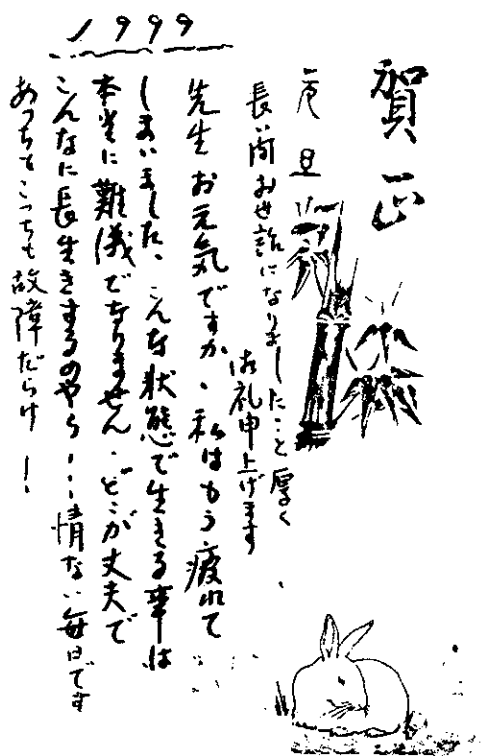 1999
賀正
元旦
長い間お世話になりましたこと厚く
御礼申上げます
先生お元気ですか、私はもう疲れて
しまいました、こんな状態で生きる事は
本当に難儀でなりません。どこが丈夫で
こんなに長生きするのやら・・・情ない毎日です
あっちもこっちも故障だらけ!!